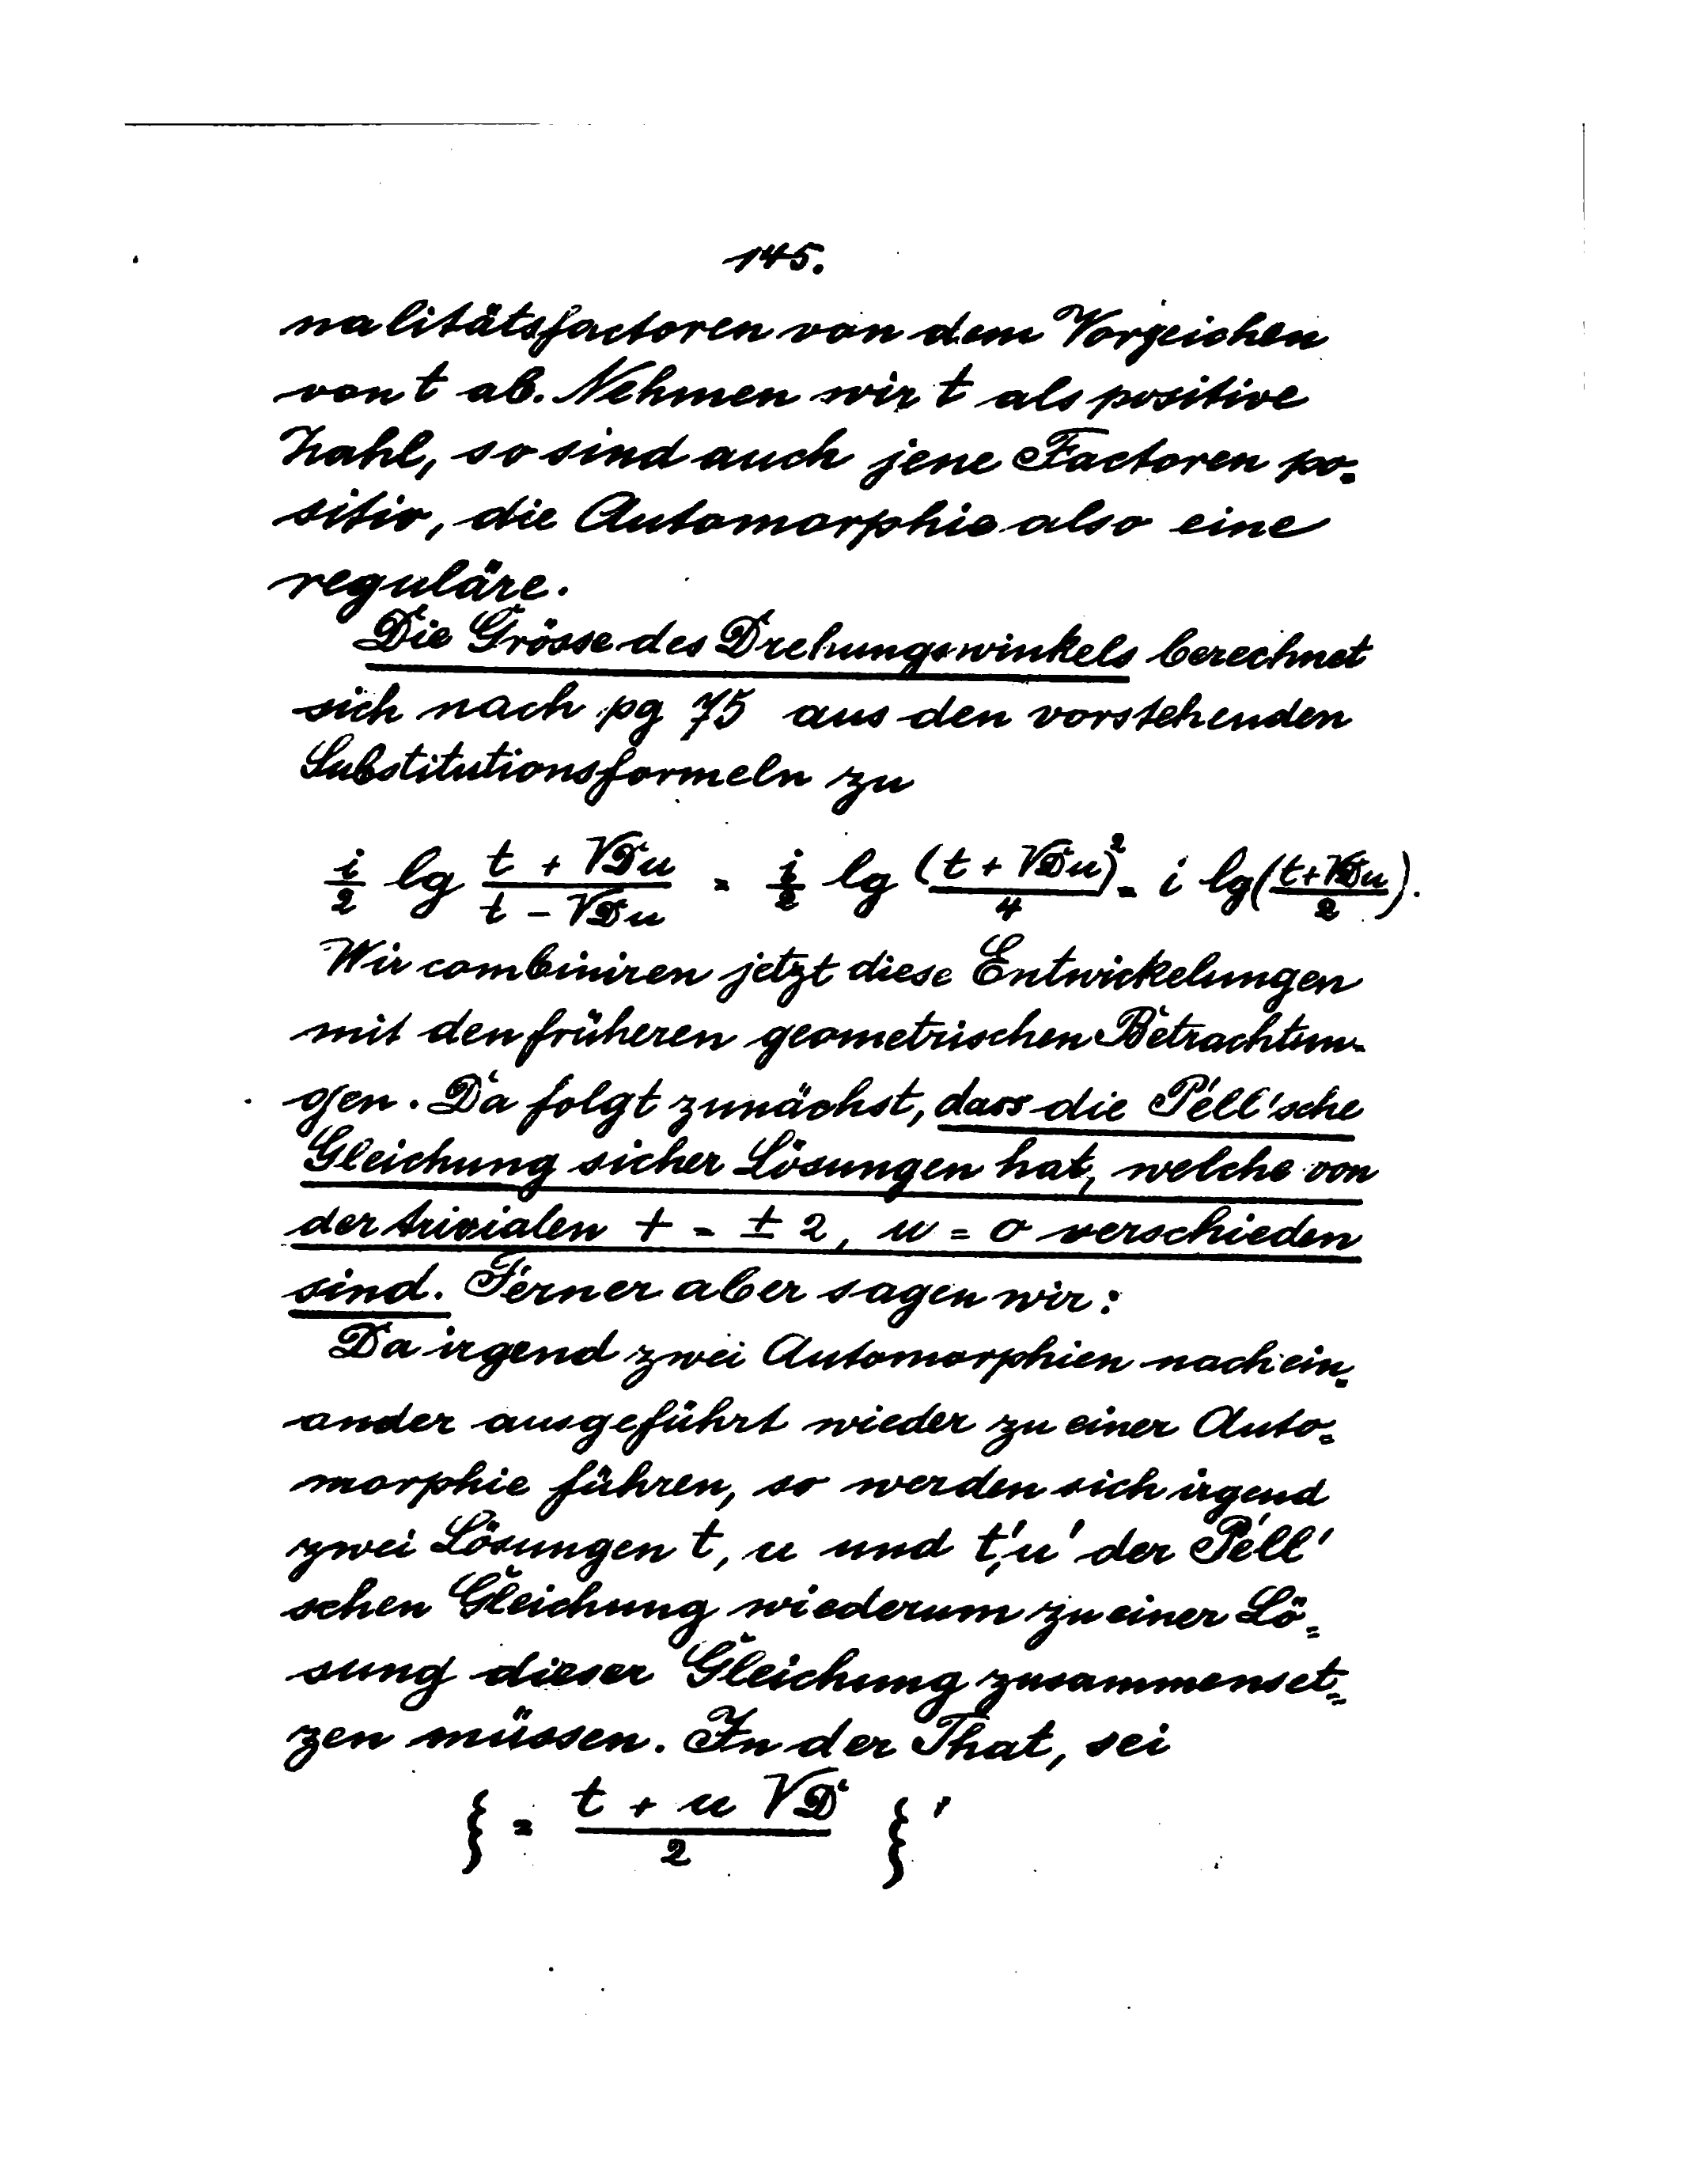 145.
nalitätsfactoren von dem Vorzeichen
von t ab. Nehmen wir t als positive
Zahl, so sind auch jene Factoren po-
sitiv, die Automorphie also eine
reguläre.
Die Grösse des Drehungswinkels berechnet
sich nach pg 75 aus den vorstehenden
Substitutionsformeln zu
i/2 lg (t + √D u)/(t - √D u) = i/2 lg (t + √D u)²/4 = i lg((t + √D u)/2).
Wir combiniren jetzt diese Entwickelungen
mit den früheren geometrischen Betrachtun-
gen. Da folgt zunächst, dass die Pell'sche
Gleichung sicher Lösungen hat, welche von
der trivialen t = ± 2, u = 0 verschieden
sind. Ferner aber sagen wir:
Da irgend zwei Automorphien nachein-
ander ausgeführt wieder zu einer Auto-
morphie führen, so werden sich irgend
zwei Lösungen t, u und t', u' der Pell'
schen Gleichung wiederum zu einer Lö-
sung dieser Gleichung zusammenset-
zen müssen. In der That, sei
ξ = (t + u √D)/2 ξ'